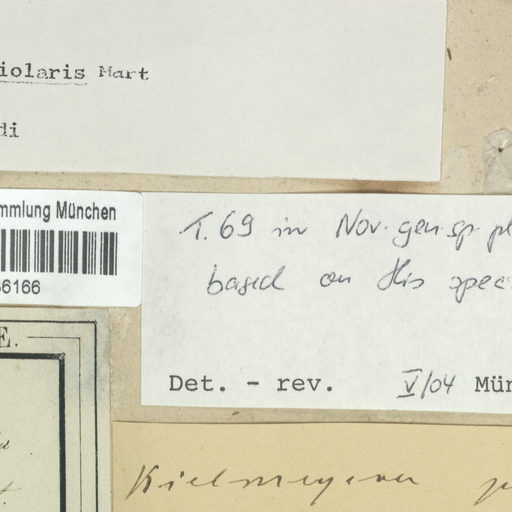 iolaris Mart
di
mmlung München
6166
T. 69 in Nov. gen. sp. pl
based on this spec
Det. - rev. V/04 Mün
E.
Kielmeyera